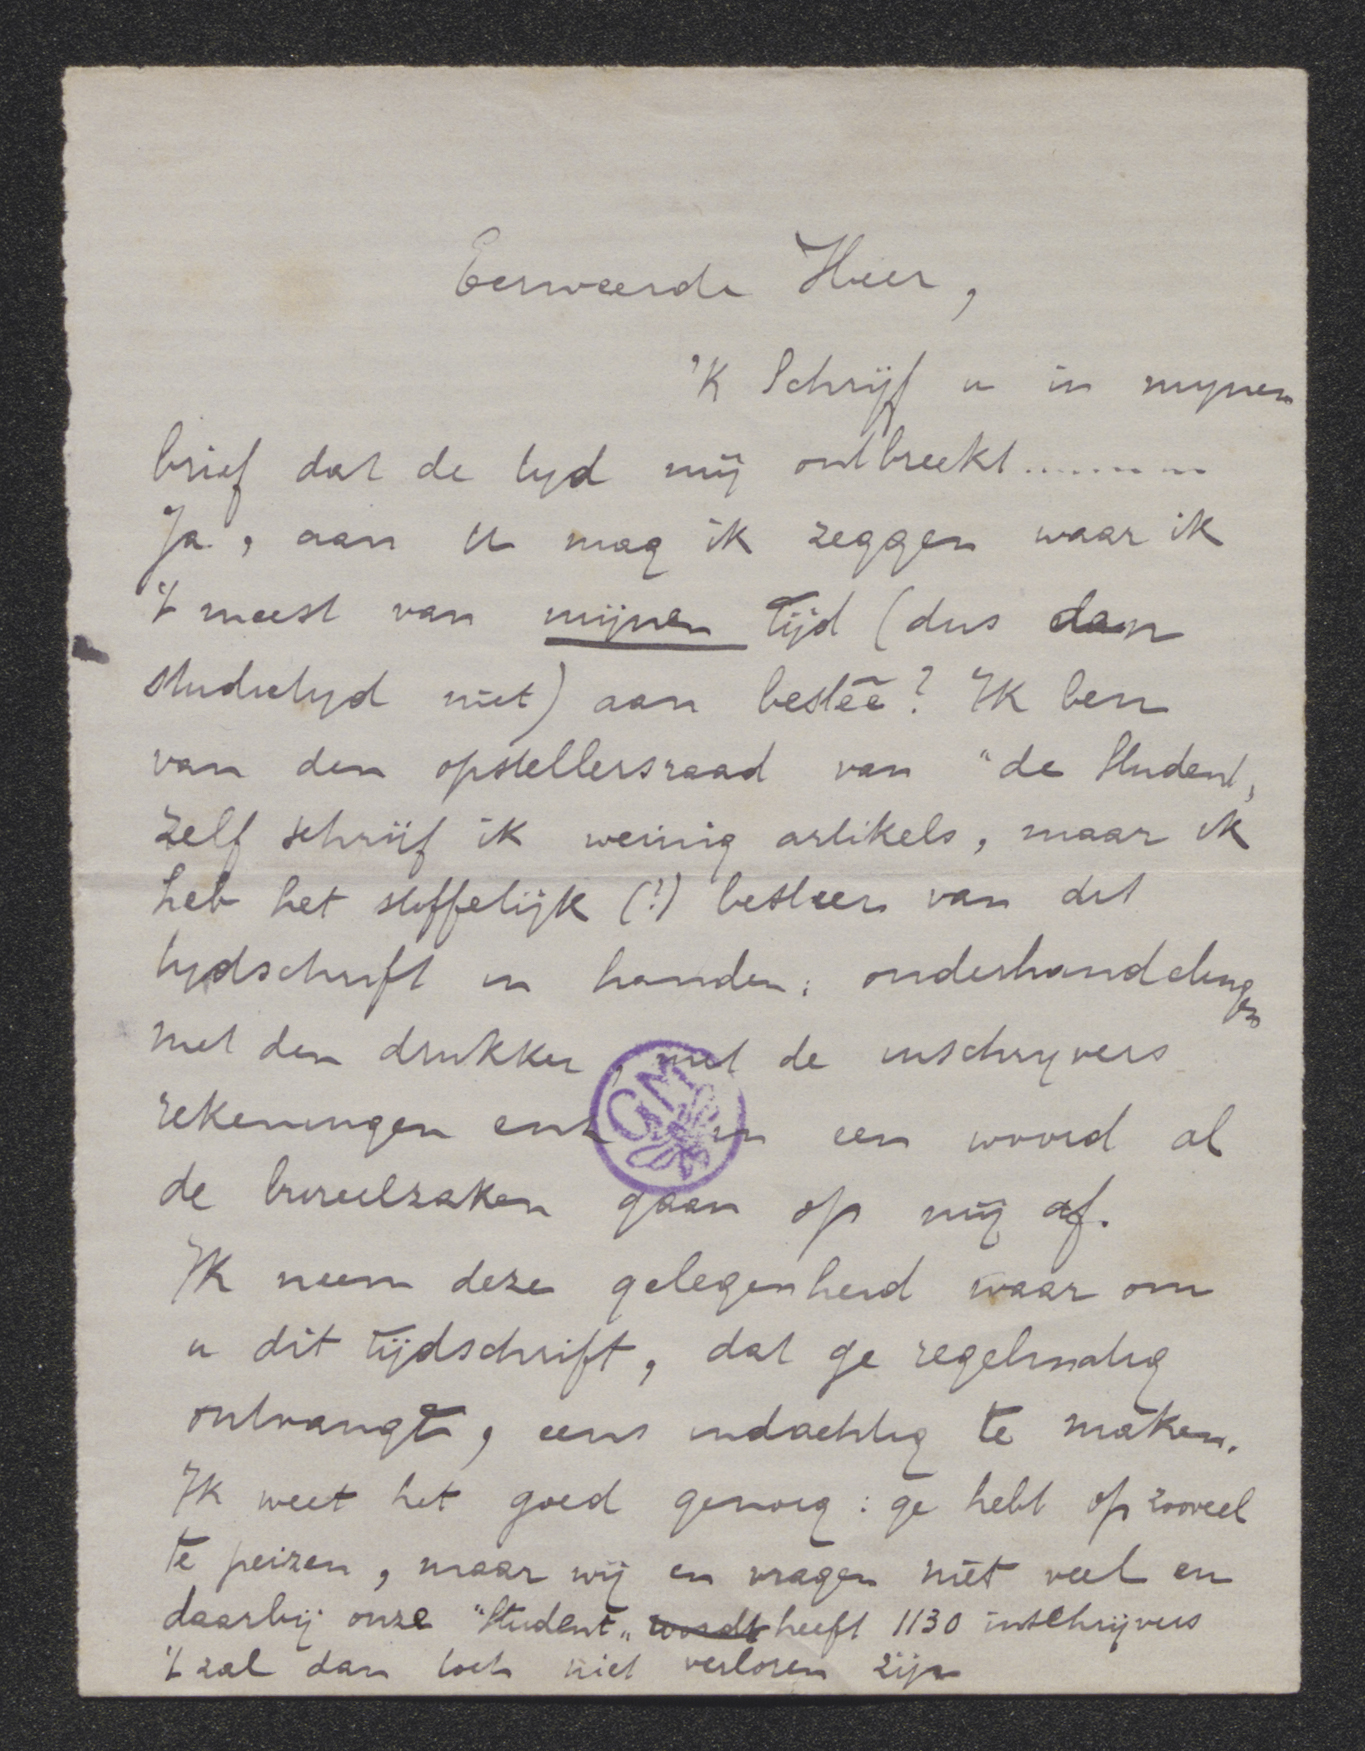 Eerweerde Heer,
'K Schrijf u in mynen
brief dat de tyd mij ontbreekt.........
Ja, aan U mag ik zeggen waar ik
't meest van mijnen tijd (dus den
studietyd niet) aan bestee? Ik ben
van den opstellersraad van "de Student,
zelf schrijf ik weinig artikels, maar ik
heb het stoffelijk (!) besteer van dit
tydschrift in handen: onderhandelingen
met den drukker, met de inschryvers
rekeningen enz in een woord al
de bureelzaken gaan op mij af.
Ik neem deze gelegenheid waar om
u dit tijdschrift, dat ge regelmatig
ontvangt, eens indachtig te maken.
Ik weet het goed genoeg: ge hebt op zooveel
te peizen, maar wij en vragen niet veel en
daarbij onze "Student" wordt heeft 1130 inschrijvers
't zal dan toch niet verloren zijn
GM